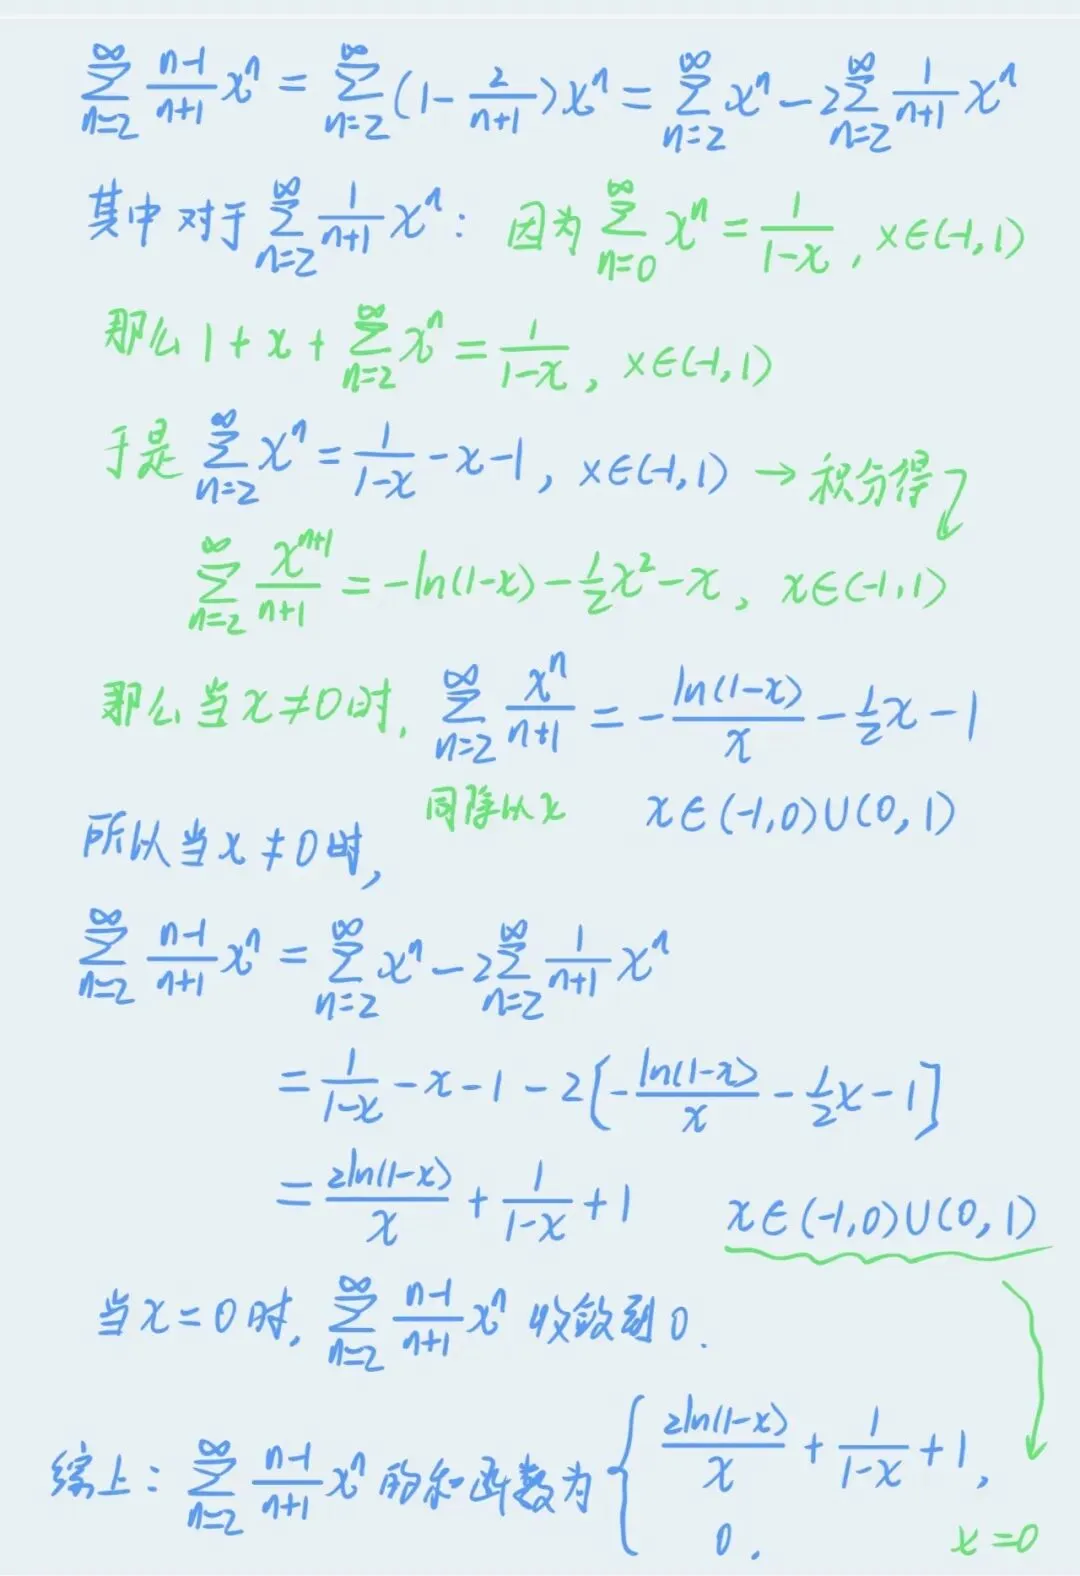 ∑_{n=2}^{∞} \frac{n-1}{n+1} x^n = ∑_{n=2}^{∞} (1 - \frac{2}{n+1}) x^n = ∑_{n=2}^{∞} x^n - 2∑_{n=2}^{∞} \frac{1}{n+1} x^n
其中对于 ∑_{n=2}^{∞} \frac{1}{n+1} x^n : 因为 ∑_{n=0}^{∞} x^n = \frac{1}{1-x}, x∈(-1,1)
那么 1 + x + ∑_{n=2}^{∞} x^n = \frac{1}{1-x}, x∈(-1,1)
于是 ∑_{n=2}^{∞} x^n = \frac{1}{1-x} - x - 1, x∈(-1,1) → 积分得
∑_{n=2}^{∞} \frac{x^{n+1}}{n+1} = -ln(1-x) - \frac{1}{2}x^2 - x, x∈(-1,1)
那么当 x≠0时, ∑_{n=2}^{∞} \frac{x^n}{n+1} = -\frac{ln(1-x)}{x} - \frac{1}{2}x - 1
同除以x x∈(-1,0)∪(0,1)
所以当 x≠0时,
∑_{n=2}^{∞} \frac{n-1}{n+1} x^n = ∑_{n=2}^{∞} x^n - 2∑_{n=2}^{∞} \frac{1}{n+1} x^n
= \frac{1}{1-x} - x - 1 - 2[-\frac{ln(1-x)}{x} - \frac{1}{2}x - 1]
= \frac{2ln(1-x)}{x} + \frac{1}{1-x} + 1 x∈(-1,0)∪(0,1)
当 x=0时, ∑_{n=2}^{∞} \frac{n-1}{n+1} x^n 收敛到0.
综上: ∑_{n=2}^{∞} \frac{n-1}{n+1} x^n 的和函数为 { \frac{2ln(1-x)}{x} + \frac{1}{1-x} + 1,
0. x=0